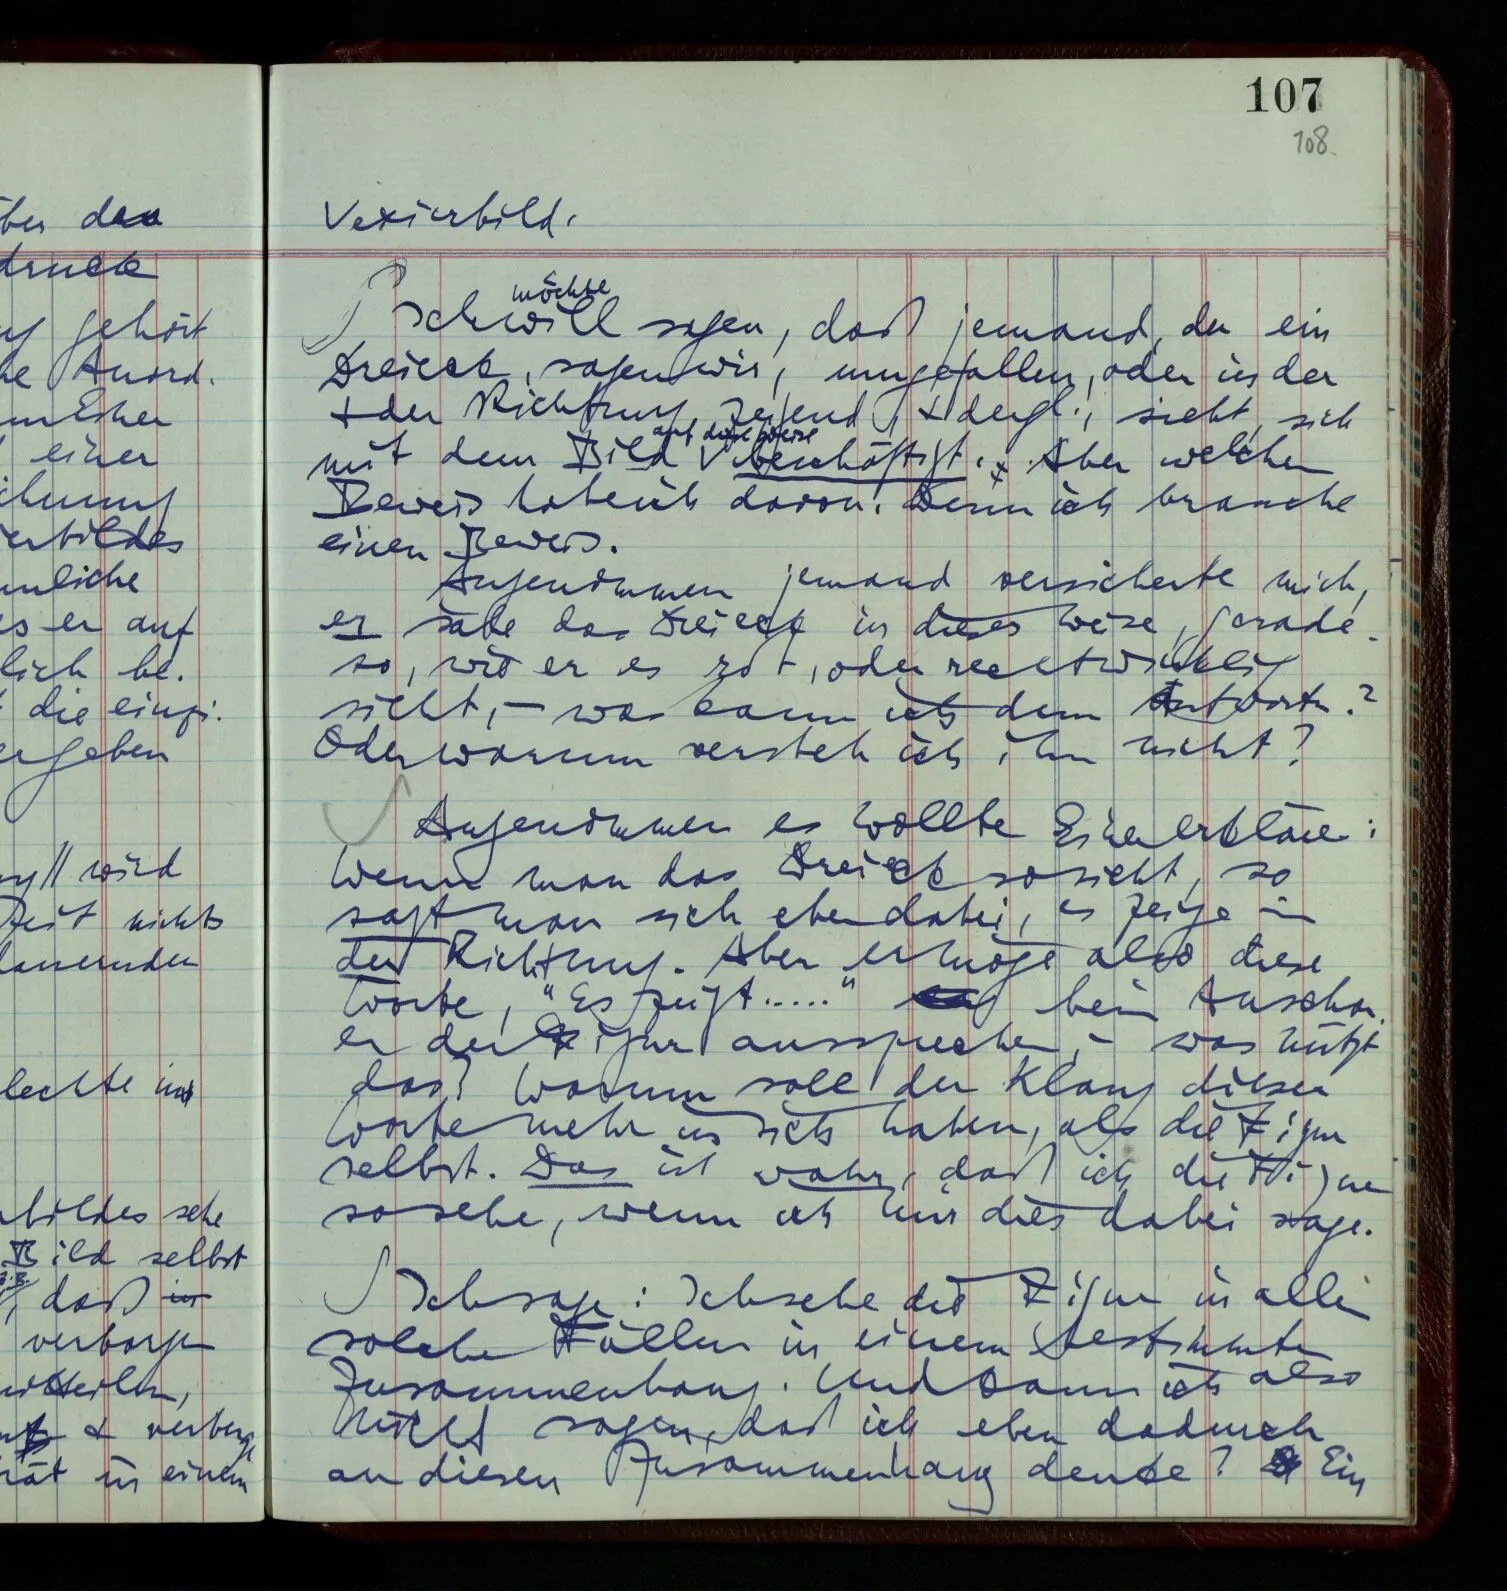 107
108.
ber das
druck
gehört
he Anord.
einer
ichnung
erbildes
mliche
es er auf
lich be-
die eingi-
ergeben
wird
Zeit nichts
dauernden
bildes sehe
Bild selbst
z.B.
, daß in
verborgen
mitteilen,
& verberge
rät in einem
Vexierbild.
möchte
Ich will sagen, daß jemand, der ein
Dreieck, sagen wir, umgefallen, oder in der
& der Richtung zeigend, & dergl., sieht, sich
auf diese Weise
mit dem Bild beschäftigt. Aber welchen
Beweis habe ich davon? Denn ich brauche
einen Beweis.
Angenommen jemand versicherte mich,
er sähe das Dreieck in dieser Weise, gerade
so, wie er es rot, oder rechtwinklig
sieht, – was kann ich dem antworten?
Oder warum versteh ich ihn nicht?
Angenommen es wollte Einer erklären:
Wenn man das Dreieck so sieht, so
sagt man sich eben dabei, es zeige in
der Richtung. Aber er möge also diese
Worte, "Es zeigt....." beim Anschau-
en der Figur aussprechen, – was nützt
das? Warum soll der Klang dieser
Worte mehr in sich haben, als die Figur
selbst. Das ist wahr, daß ich die Figur
so sehe, wenn ich mir dies dabei sage.
Ich sage: Ich sehe die Figur in allen
solchen Fällen in einem bestimmten
Zusammenhang. Und kann ich also
nicht sagen, daß ich eben dadurch
an diesen Zusammenhang denke? Ein